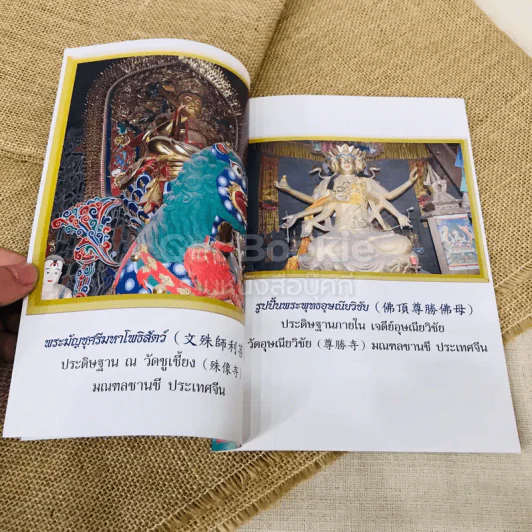 พระมัญชุศรีมหาโพธิสัตว์ (文殊師利菩
ประดิษฐาน ณ วัดชูเซี้ยง (殊像寺)
มณฑลซานซี ประเทศจีน
รูปปั้นพระพุทธอุษณียวิชัย (佛頂尊勝佛母)
ประดิษฐานภายใน เจดีย์อุษณียวิชัย
วัดอุษณียวิชัย (尊勝寺) มณฑลซานซี ประเทศจีน
Bookie